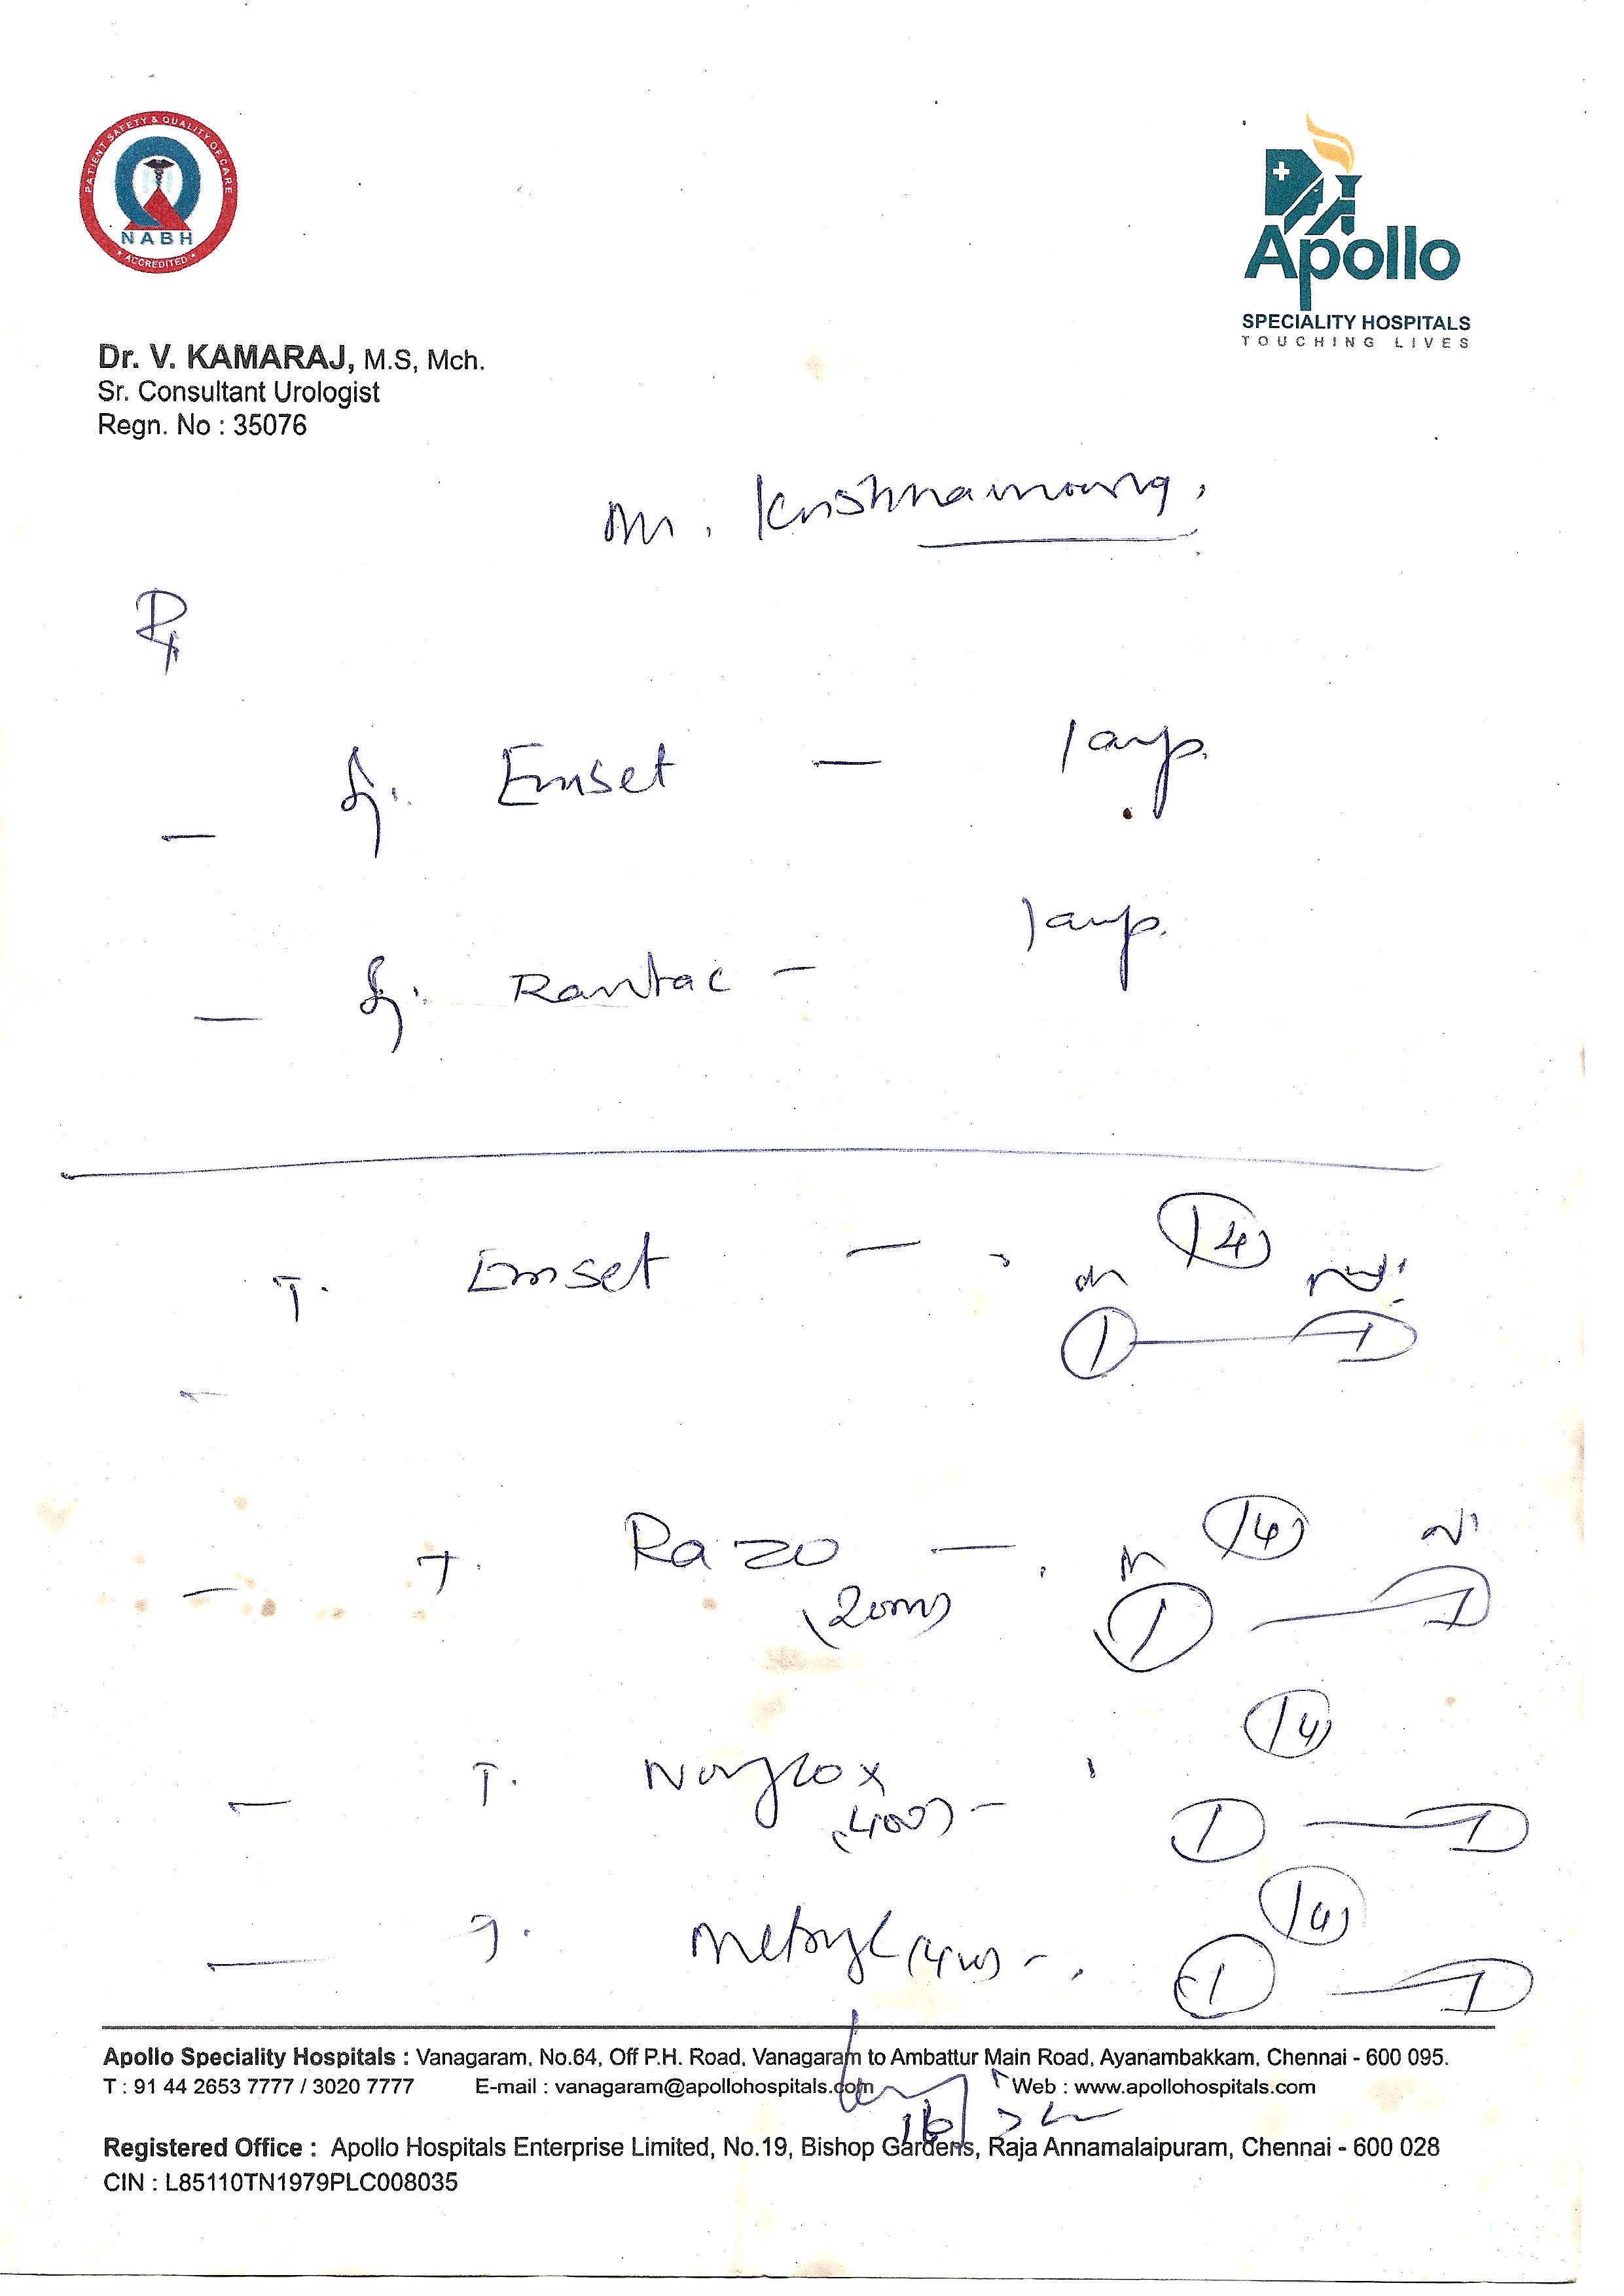 PATIENT SAFETY & QUALITY OF CARE
NABH
ACCREDITED
Apollo
SPECIALITY HOSPITALS
TOUCHING LIVES
Dr. V. KAMARAJ, M.S, Mch.
Sr. Consultant Urologist
Regn. No : 35076
Mr. Krishnamoorthy.
Rx
Emset — 1 amp.
Rantac — 1 amp.
14
T. Emset —
1 — 1
14
T. Razo —
(20mg)
1 — 1
14
T. Norflox
(400) —
1 — 1
14
T. Metrogyl (400) —
1 — 1
Apollo Speciality Hospitals : Vanagaram, No.64, Off P.H. Road, Vanagaram to Ambattur Main Road, Ayanambakkam, Chennai - 600 095.
T : 91 44 2653 7777 / 3020 7777 E-mail : vanagaram@apollohospitals.com Web : www.apollohospitals.com
Registered Office : Apollo Hospitals Enterprise Limited, No.19, Bishop Gardens, Raja Annamalaipuram, Chennai - 600 028
CIN : L85110TN1979PLC008035